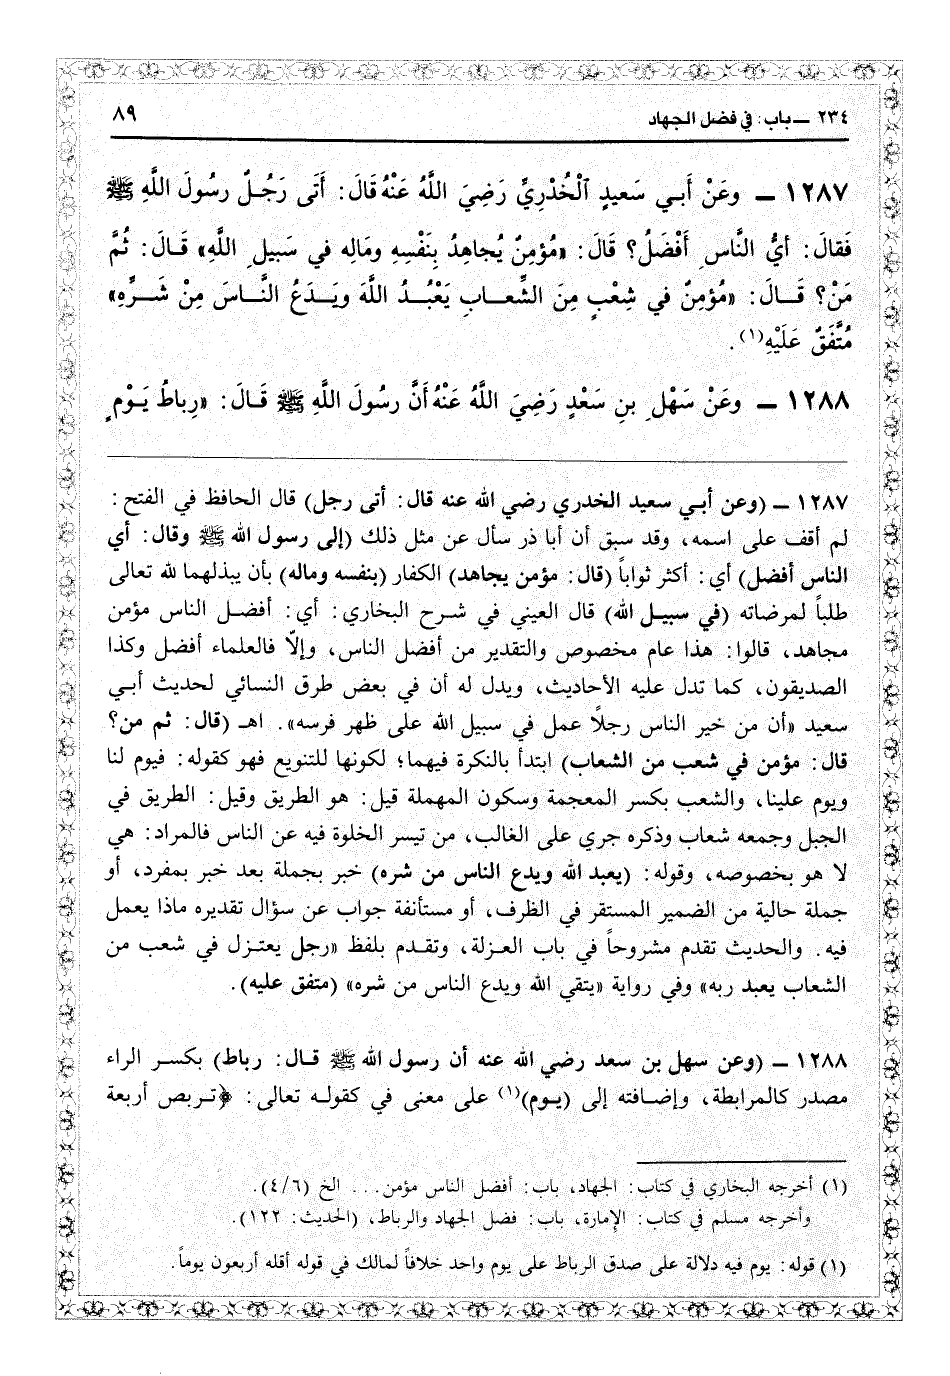 ٢٣٤ ــ باب: في فضل الجهاد ٨٩
١٢٨٧ ــ وعَنْ أَبـي سَعيدٍ ٱلْخُدْرِيِّ رَضِيَ اللَّهُ عَنْهُ قَالَ: أَتَى رَجُلٌ رسُولَ اللَّهِ ﷺ
فَقالَ: أيُّ النَّاسِ أَفْضَلُ؟ قَالَ: «مُؤمِنٌ يُجاهِدُ بِنَفْسِهِ ومَالِه في سَبيلِ اللَّهِ» قَـالَ: ثُمَّ
مَنْ؟ قَـالَ: «مُؤمِنٌ في شِعْبٍ مِنَ الشِّعـابِ يَعْبُـدُ اللَّهَ ويَـدَعُ النَّـاسَ مِنْ شَـرِّهِ»
مُتَّفَقٌ عَلَيْهِ(١).
١٢٨٨ ــ وعَنْ سَهْلِ بنِ سَعْدٍ رَضِيَ اللَّهُ عَنْهُ أَنَّ رسُولَ اللَّهِ ﷺ قَـالَ: «رِباطُ يَـوْمٍ
١٢٨٧ ــ (وعن أبـي سعيد الخدري رضي الله عنه قال: أتى رجل) قال الحافظ في الفتح:
لم أقف على اسمه، وقد سبق أن أبا ذر سأل عن مثل ذلك (إلى رسول الله ﷺ وقال: أي
الناس أفضل) أي: أكثر ثواباً (قال: مؤمن يجاهد) الكفار (بنفسه وماله) بأن يبذلهما لله تعالى
طلباً لمرضاته (في سبيـل الله) قال العيني في شـرح البخاري: أي: أفضـل الناس مؤمن
مجاهد، قالوا: هذا عام مخصوص والتقدير من أفضل الناس، وإلّا فالعلماء أفضل وكذا
الصديقون، كما تدل عليه الأحاديث، ويدل له أن في بعض طرق النسائي لحديث أبـي
سعيد «أن من خير الناس رجلاً عمل في سبيل الله على ظهر فرسه». اهـ (قال: ثم من؟
قال: مؤمن في شعب من الشعاب) ابتدأ بالنكرة فيهما؛ لكونها للتنويع فهو كقوله: فيوم لنا
ويوم علينا، والشعب بكسر المعجمة وسكون المهملة قيل: هو الطريق وقيل: الطريق في
الجبل وجمعه شعاب وذكره جري على الغالب، من تيسر الخلوة فيه عن الناس فالمراد: هي
لا هو بخصوصه، وقوله: (يعبد الله ويدع الناس من شره) خبر بجملة بعد خبر بمفرد، أو
جملة حالية من الضمير المستقر في الظرف، أو مستأنفة جواب عن سؤال تقديره ماذا يعمل
فيه. والحديث تقدم مشروحاً في باب العـزلة، وتقـدم بلفظ «رجل يعتـزل في شعب من
الشعاب يعبد ربه» وفي رواية «يتقي الله ويدع الناس من شره» (متفق عليه).
١٢٨٨ ــ (وعن سهل بن سعد رضي الله عنه أن رسول الله ﷺ قـال: رباط) بكسـر الراء
مصدر كالمرابطة، وإضـافته إلى (يـوم)(١) على معنى في كقولـه تعالى: ﴿تـربص أربعة
(١) أخرجه البخاري في كتاب: الجهاد، باب: أفضل الناس مؤمن... الخ (٤/٦).
وأخرجه مسلم في كتاب: الإمارة، باب: فضل الجهاد والرباط، (الحديث: ١٢٢).
(١) قوله: يوم فيه دلالة على صدق الرباط على يوم واحد خلافاً لمالك في قوله أقله أربعون يوماً.